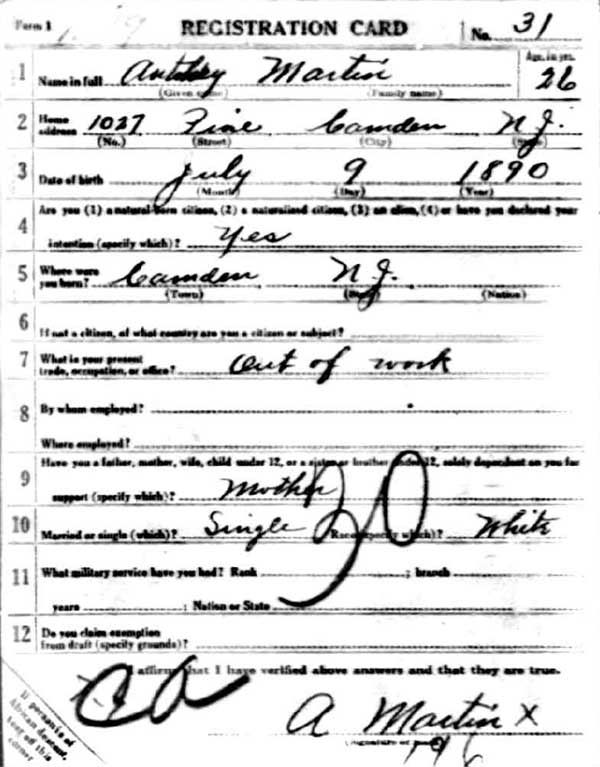 Form 1 REGISTRATION CARD No. 31
1 Name in full Anthony Martin Age, in yrs. 26
(Given name) (Family name)
2 Home address 1027 Pine Camden N.J.
(No.) (Street) (City) (State)
3 Date of birth July 9 1890
(Month) (Day) (Year)
4 Are you (1) a natural-born citizen, (2) a naturalized citizen, (3) an alien, (4) or have you declared your
intention (specify which)? Yes
5 Where were you born? Camden N.J.
(Town) (State) (Nation)
6 If not a citizen, of what country are you a citizen or subject?
7 What is your present trade, occupation, or office? Out of work
8 By whom employed?
Where employed?
9 Have you a father, mother, wife, child under 12, or a sister or brother under 12, solely dependent on you for
support (specify which)? Mother
10 Married or single (which)? Single Race (specify which)? White
11 What military service have you had? Rank ; branch
years ; Nation or State
12 Do you claim exemption from draft (specify grounds)?
I affirm that I have verified above answers and that they are true.
A Martin X
If person is of African descent, tear off this corner